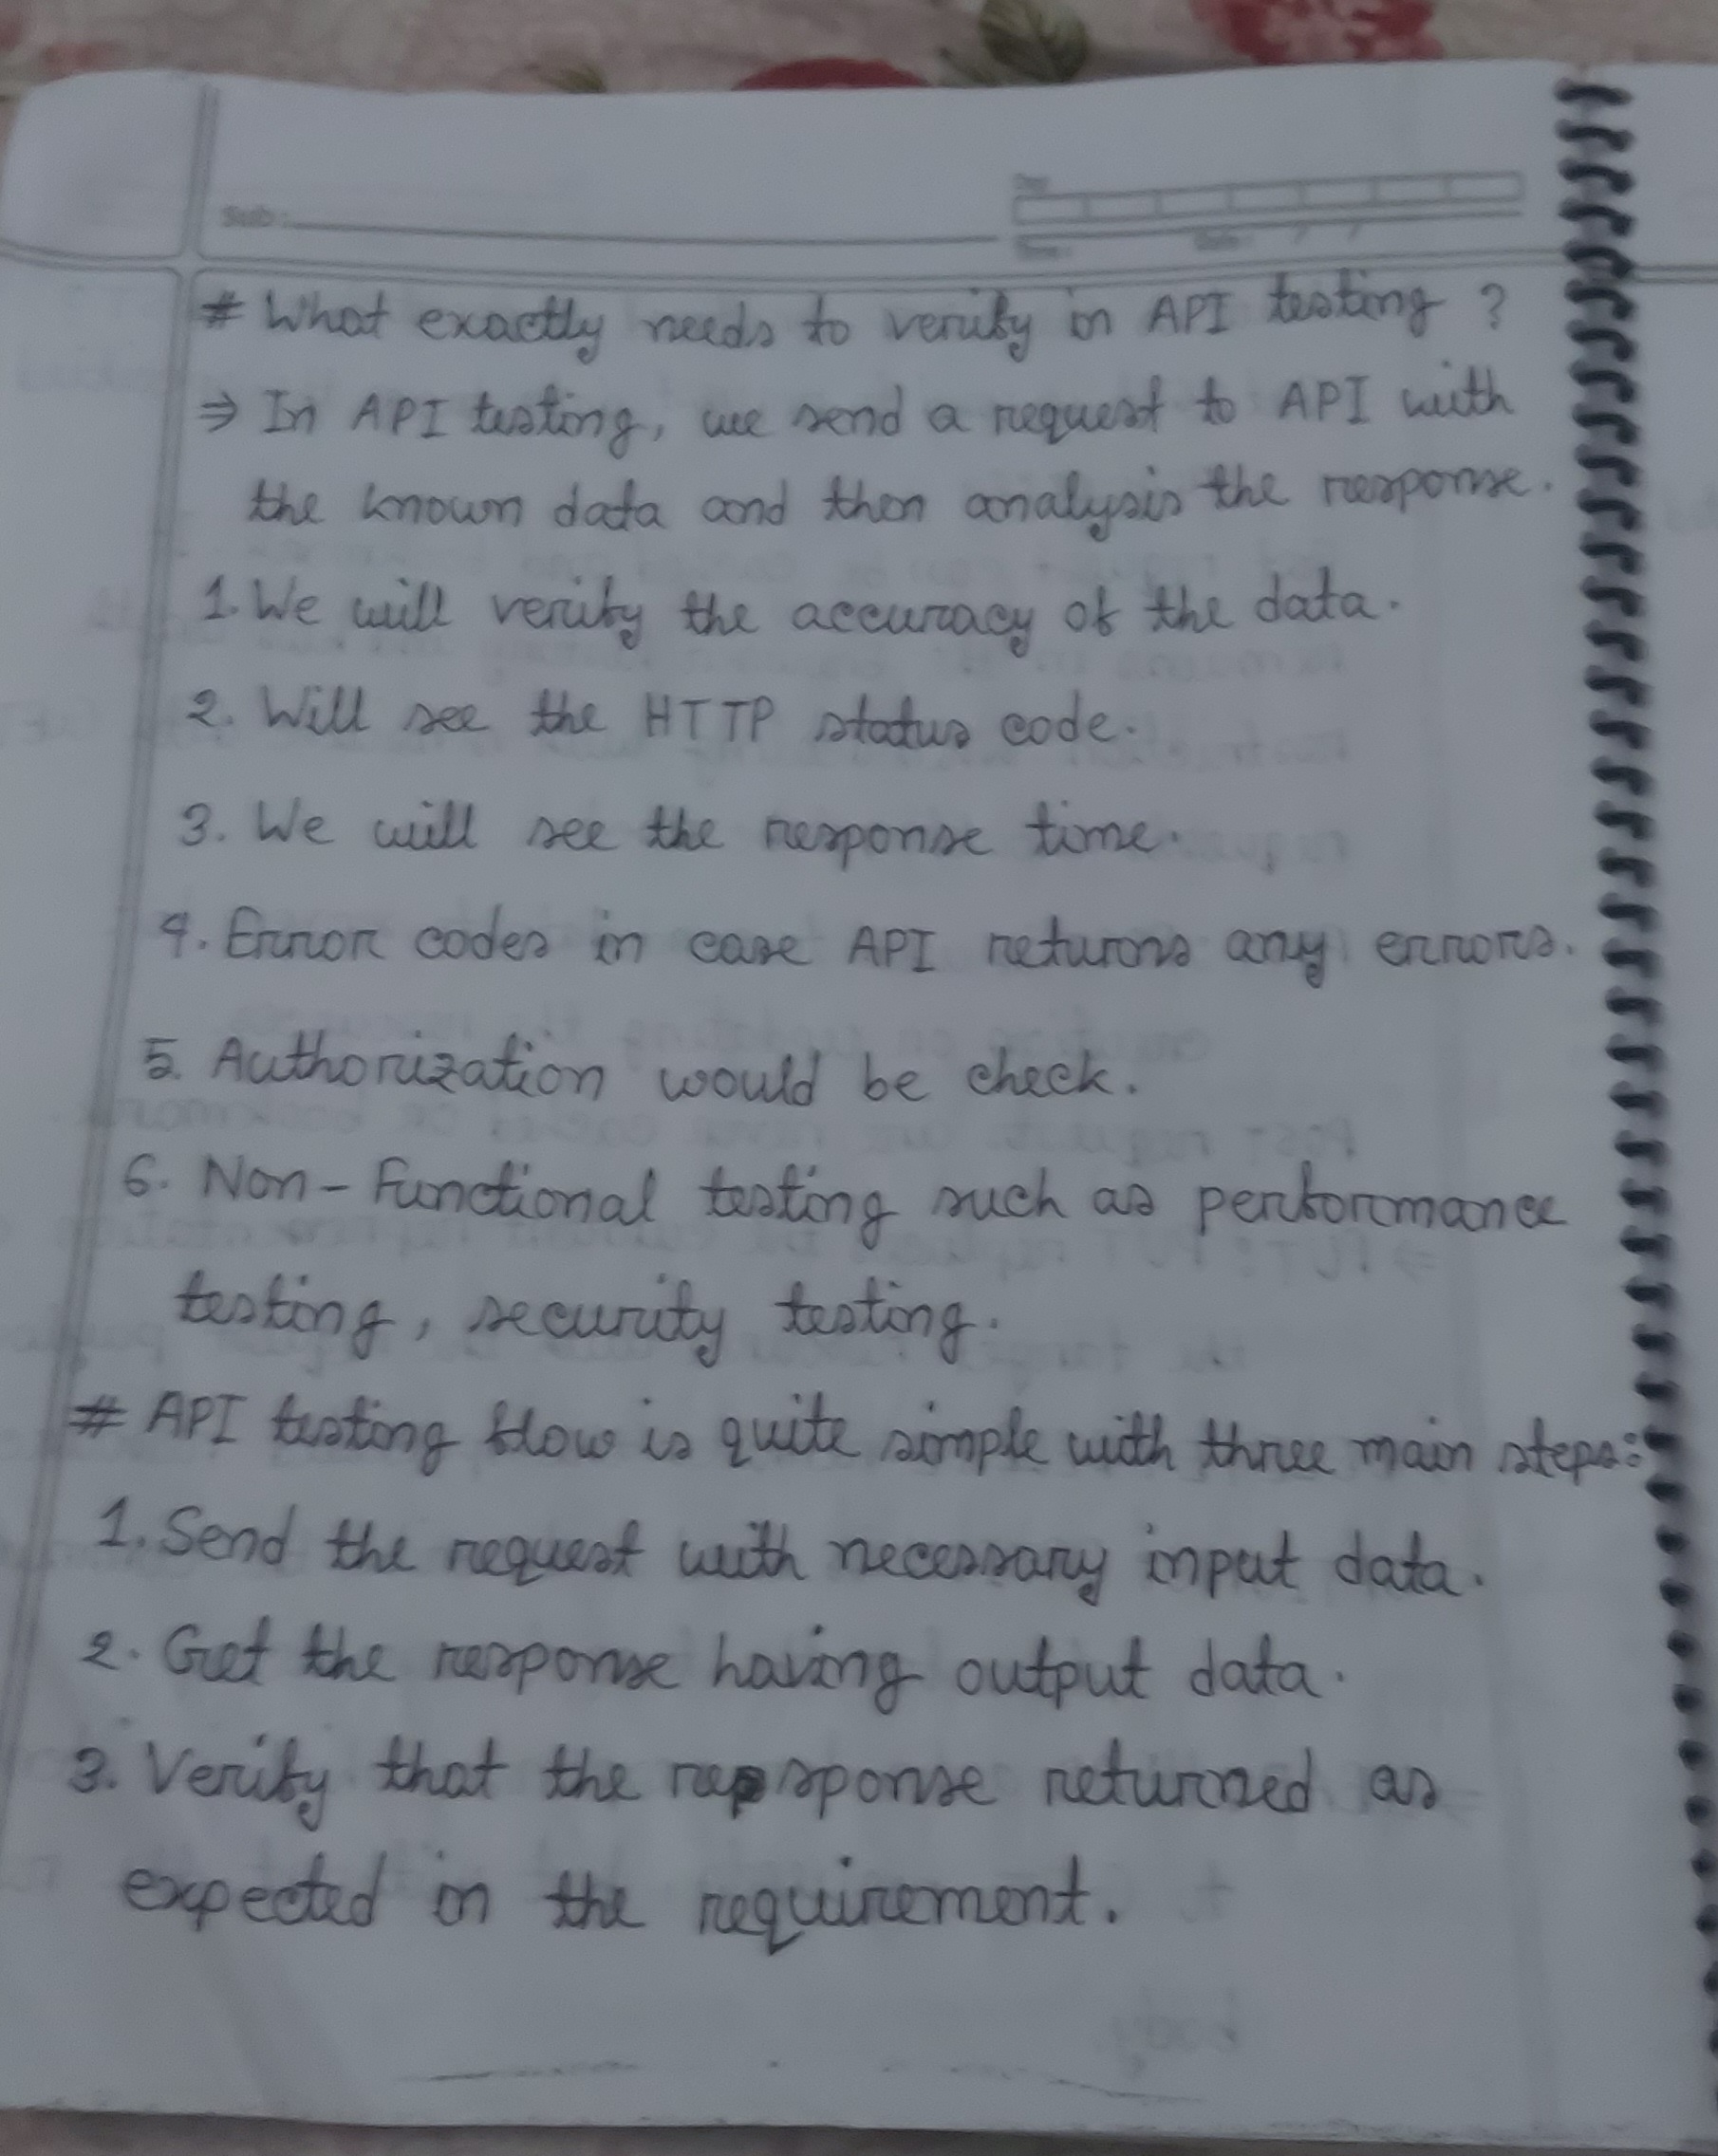 Sub:
Date: / /
# What exactly needs to verify in API testing ?
⇒ In API testing, we send a request to API with
the known data and then analysis the response.
1. We will verify the accuracy of the data.
2. Will see the HTTP status code.
3. We will see the response time.
4. Error codes in case API returns any errors.
5. Authorization would be check.
6. Non-Functional testing such as performance
testing, security testing.
# API testing flow is quite simple with three main steps:
1. Send the request with necessary input data.
2. Get the response having output data.
3. Verify that the repsponse returned as
expected in the requirement.